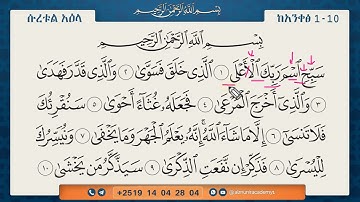 ሱረቱል አዕላ
بِسْمِ اللَّهِ الرَّحْمَٰنِ الرَّحِيمِ
ከአንቀፅ 1-10
بِسْمِ اللَّهِ الرَّحْمَٰنِ الرَّحِيمِ
سَبِّحِ اسْمَ رَبِّكَ الْأَعْلَى ١ الَّذِي خَلَقَ فَسَوَّىٰ ٢ وَالَّذِي قَدَّرَ فَهَدَىٰ
٣ وَالَّذِي أَخْرَجَ الْمَرْعَىٰ ٤ فَجَعَلَهُ غُثَاءً أَحْوَىٰ ٥ سَنُقْرِئُكَ
فَلَا تَنسَىٰ ٦ إِلَّا مَا شَاءَ اللَّهُ إِنَّهُ يَعْلَمُ الْجَهْرَ وَمَا يَخْفَىٰ ٧ وَنُيَسِّرُكَ
لِلْيُسْرَىٰ ٨ فَذَكِّرْ إِن نَّفَعَتِ الذِّكْرَىٰ ٩ سَيَذَّكَّرُ مَن يَخْشَىٰ ١٠
+2519 14 04 28 04